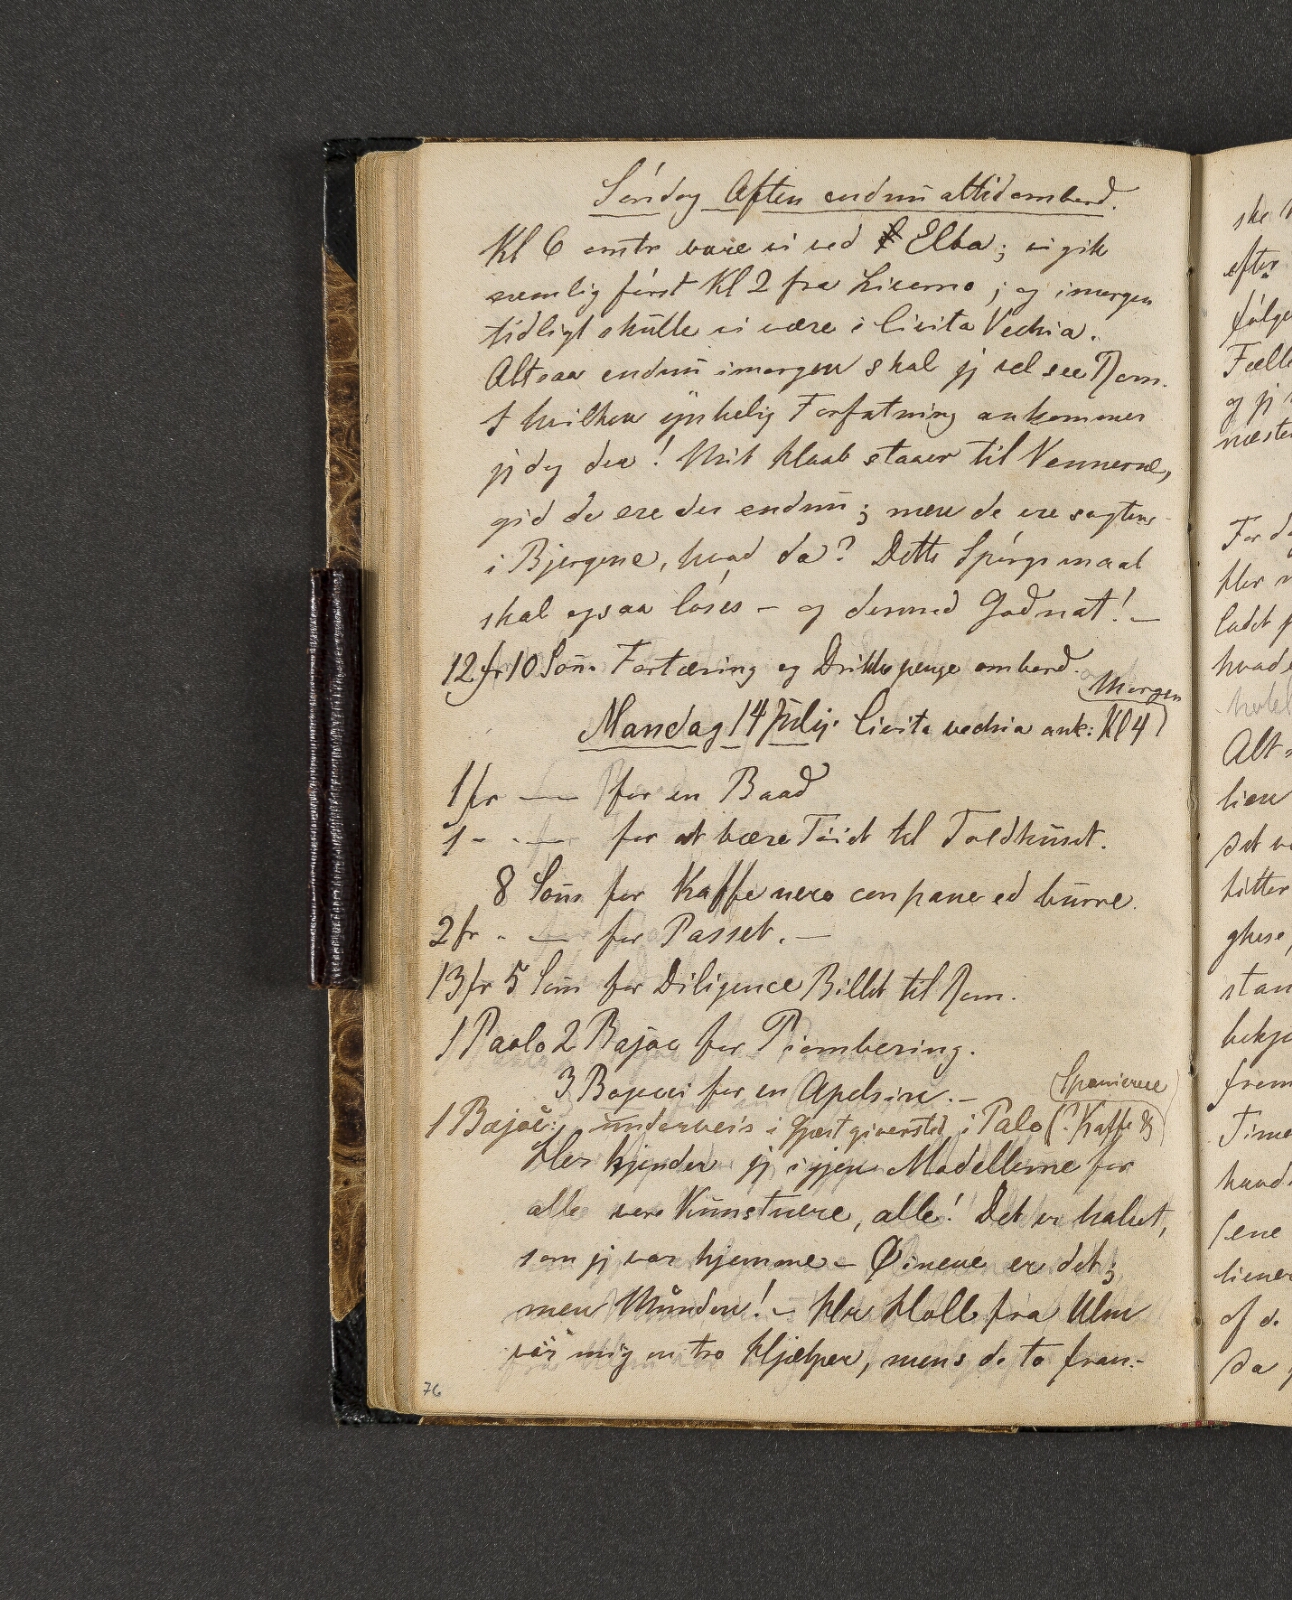 Søndag Aften endnu altid ombord.
Kl 6 omtr vare vi ved Elba; vi gik
nemlig først Kl 2 fra Livorno; og imorgen
tidligt skulle vi være i Civita Vechia.
Altsaa endnu imorgen skal jeg vel see Rom.
I hvilken ynkelig Forfatning ankommer
jeg dog der! Mit Haab staaer til Vennerne,
gid de ere der endnu; men de ere sagtens
i Bjergene, hvad da? Dette Spørgsmaal
skal ogsaa løses – og dermed Godnat! –
12 fr 10 Sou. Fortæring og Drikkepenge ombord.
Morgen
Mandag 14 July. Civita vechia ank: Kl 4
1 fr — for en Baad
1 - - — for at bære Tøiet til Toldhuset.
8 Sous for Kaffe nero con pane ed burre.
2 fr - — for Passet. —
13 fr 5 Sou for Diligence Billet til Rom.
1 Paolo 2 Bajoc for Piombering.
3 Bajocci for en Apelsin. –
Spanierne
1 Bajoc: underveis i Gjæstgiverstd i Palo (? Kaffe &
Her kjender jeg igjen Modellerne for
alle vore Kunstnere, alle! Det er halvt,
som jeg var hjemme – Øinene er det;
men Munden! – Hr Holl fra Ulm
var mig en tro Hjælper, mens de to fran-
76
ske
efter
følge
og jeg
næste
hvad
Alt